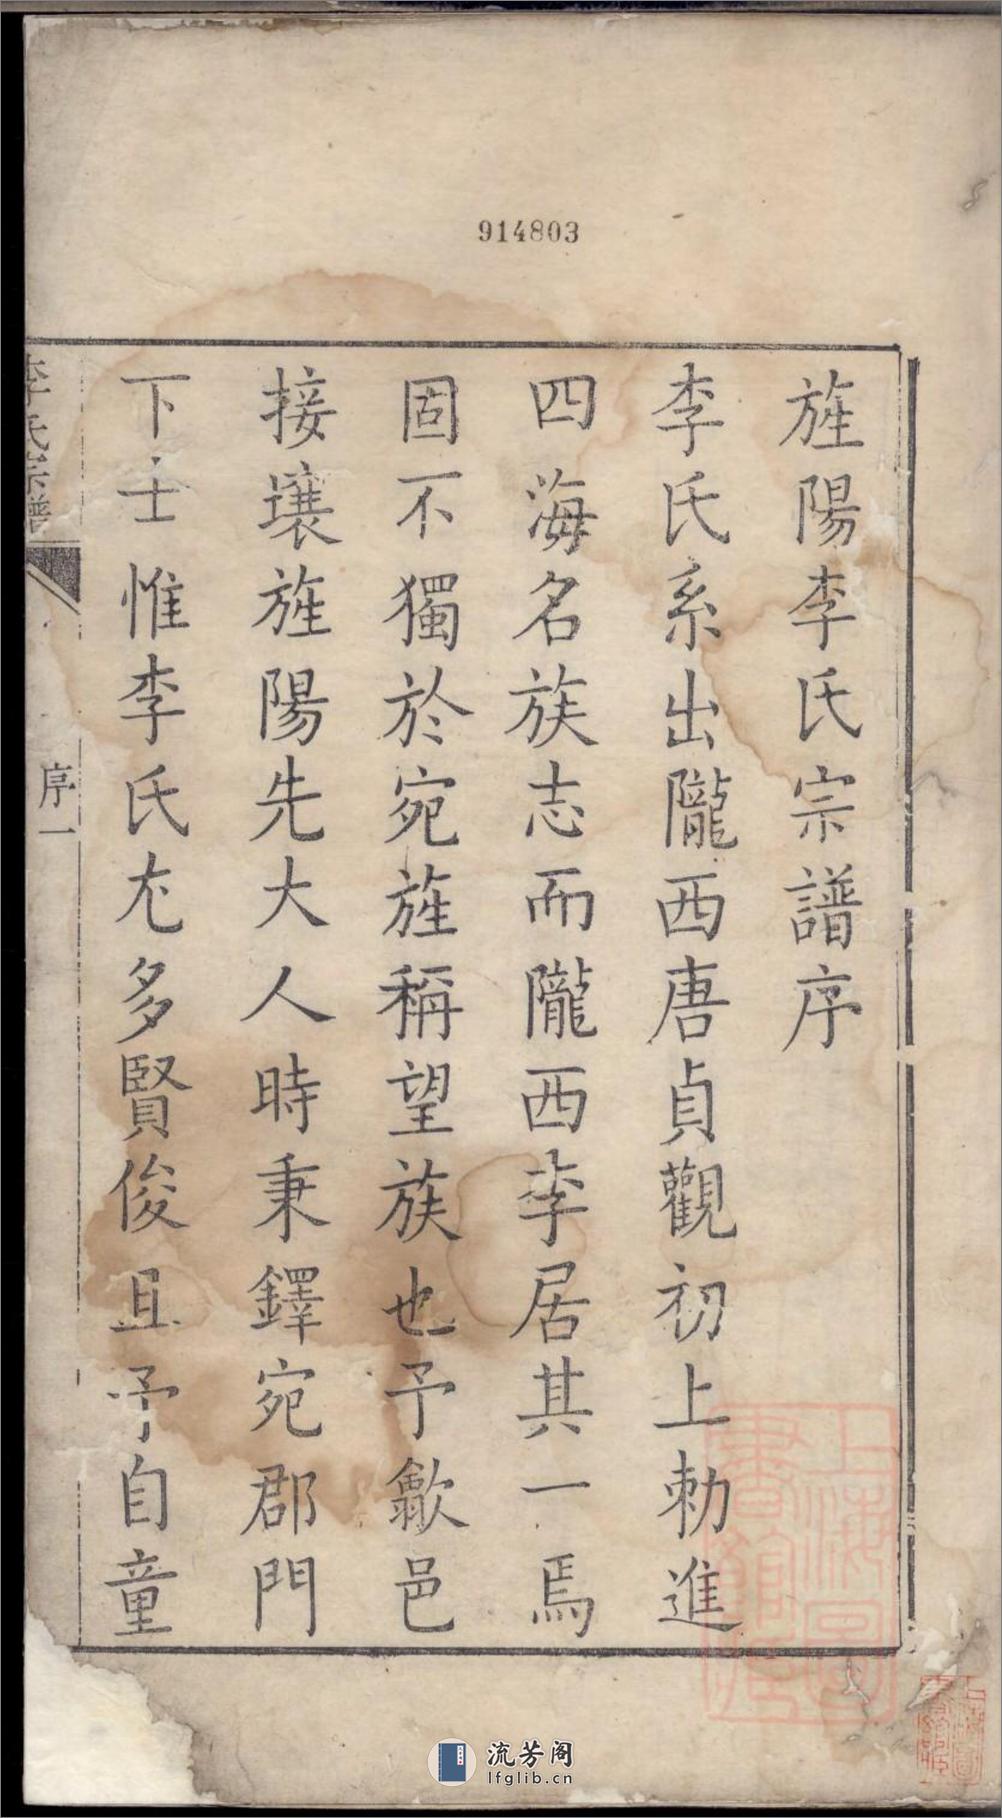 914803
旌陽李氏宗譜序
李氏系出隴西唐貞觀初上勅進
四海名族志而隴西李居其一焉
固不獨於宛旌稱望族也予歙邑
接壤旌陽先大人時秉鐸宛郡門
下士惟李氏尤多賢俊且予自童
李氏宗譜
序一
上海圖書館藏
流芳阁
lfglib.cn